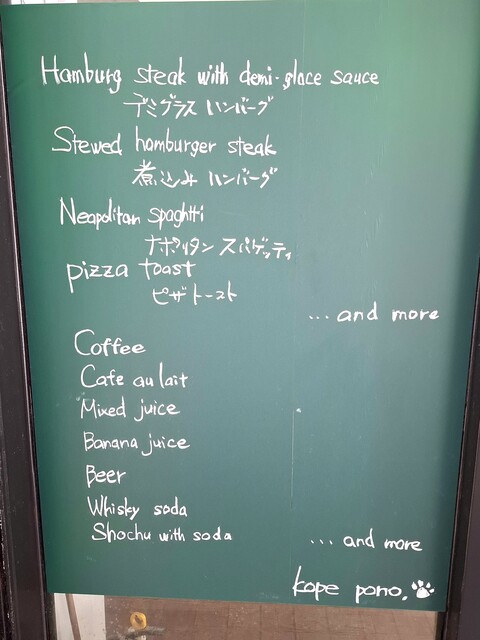 Hamburg steak with demi-glace sauce
デミグラス ハンバーグ
Stewed hamburger steak
煮込み ハンバーグ
Neapolitan spaghtti
ナポリタン スパゲッティ
pizza toast
ピザトースト
... and more
Coffee
Cafe au lait
Mixed juice
Banana juice
Beer
Whisky soda
Shochu with soda
... and more
kope pono.